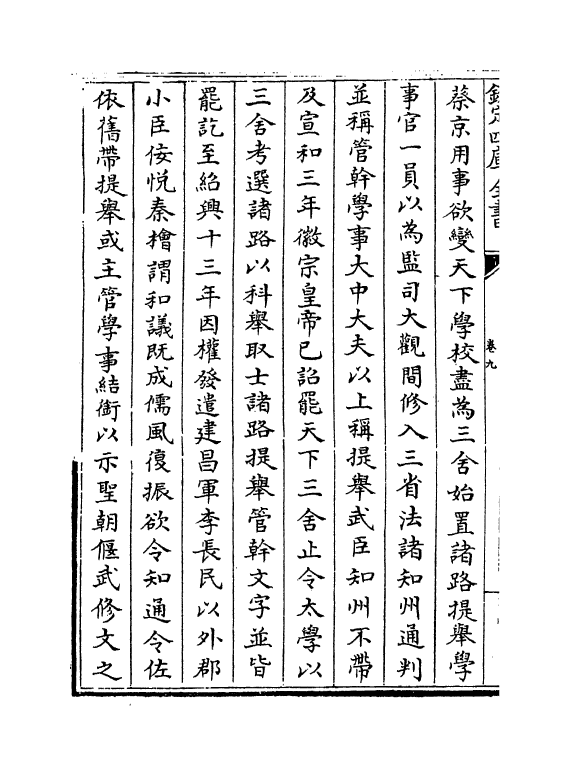 欽定四庫全書
卷九
蔡京用事欲變天下學校盡為三舍始置諸路提舉學
事官一員以為監司大觀間修入三省法諸知州通判
並稱管幹學事大中大夫以上稱提舉武臣知州不帶
及宣和三年徽宗皇帝已詔罷天下三舍止令太學以
三舍考選諸路以科舉取士諸路提舉管幹文字並皆
罷訖至紹興十三年因權發遣建昌軍李長民以外郡
小臣佞悦秦檜謂和議既成儒風復振欲令知通令佐
依舊帶提舉或主管學事結銜以示聖朝偃武修文之